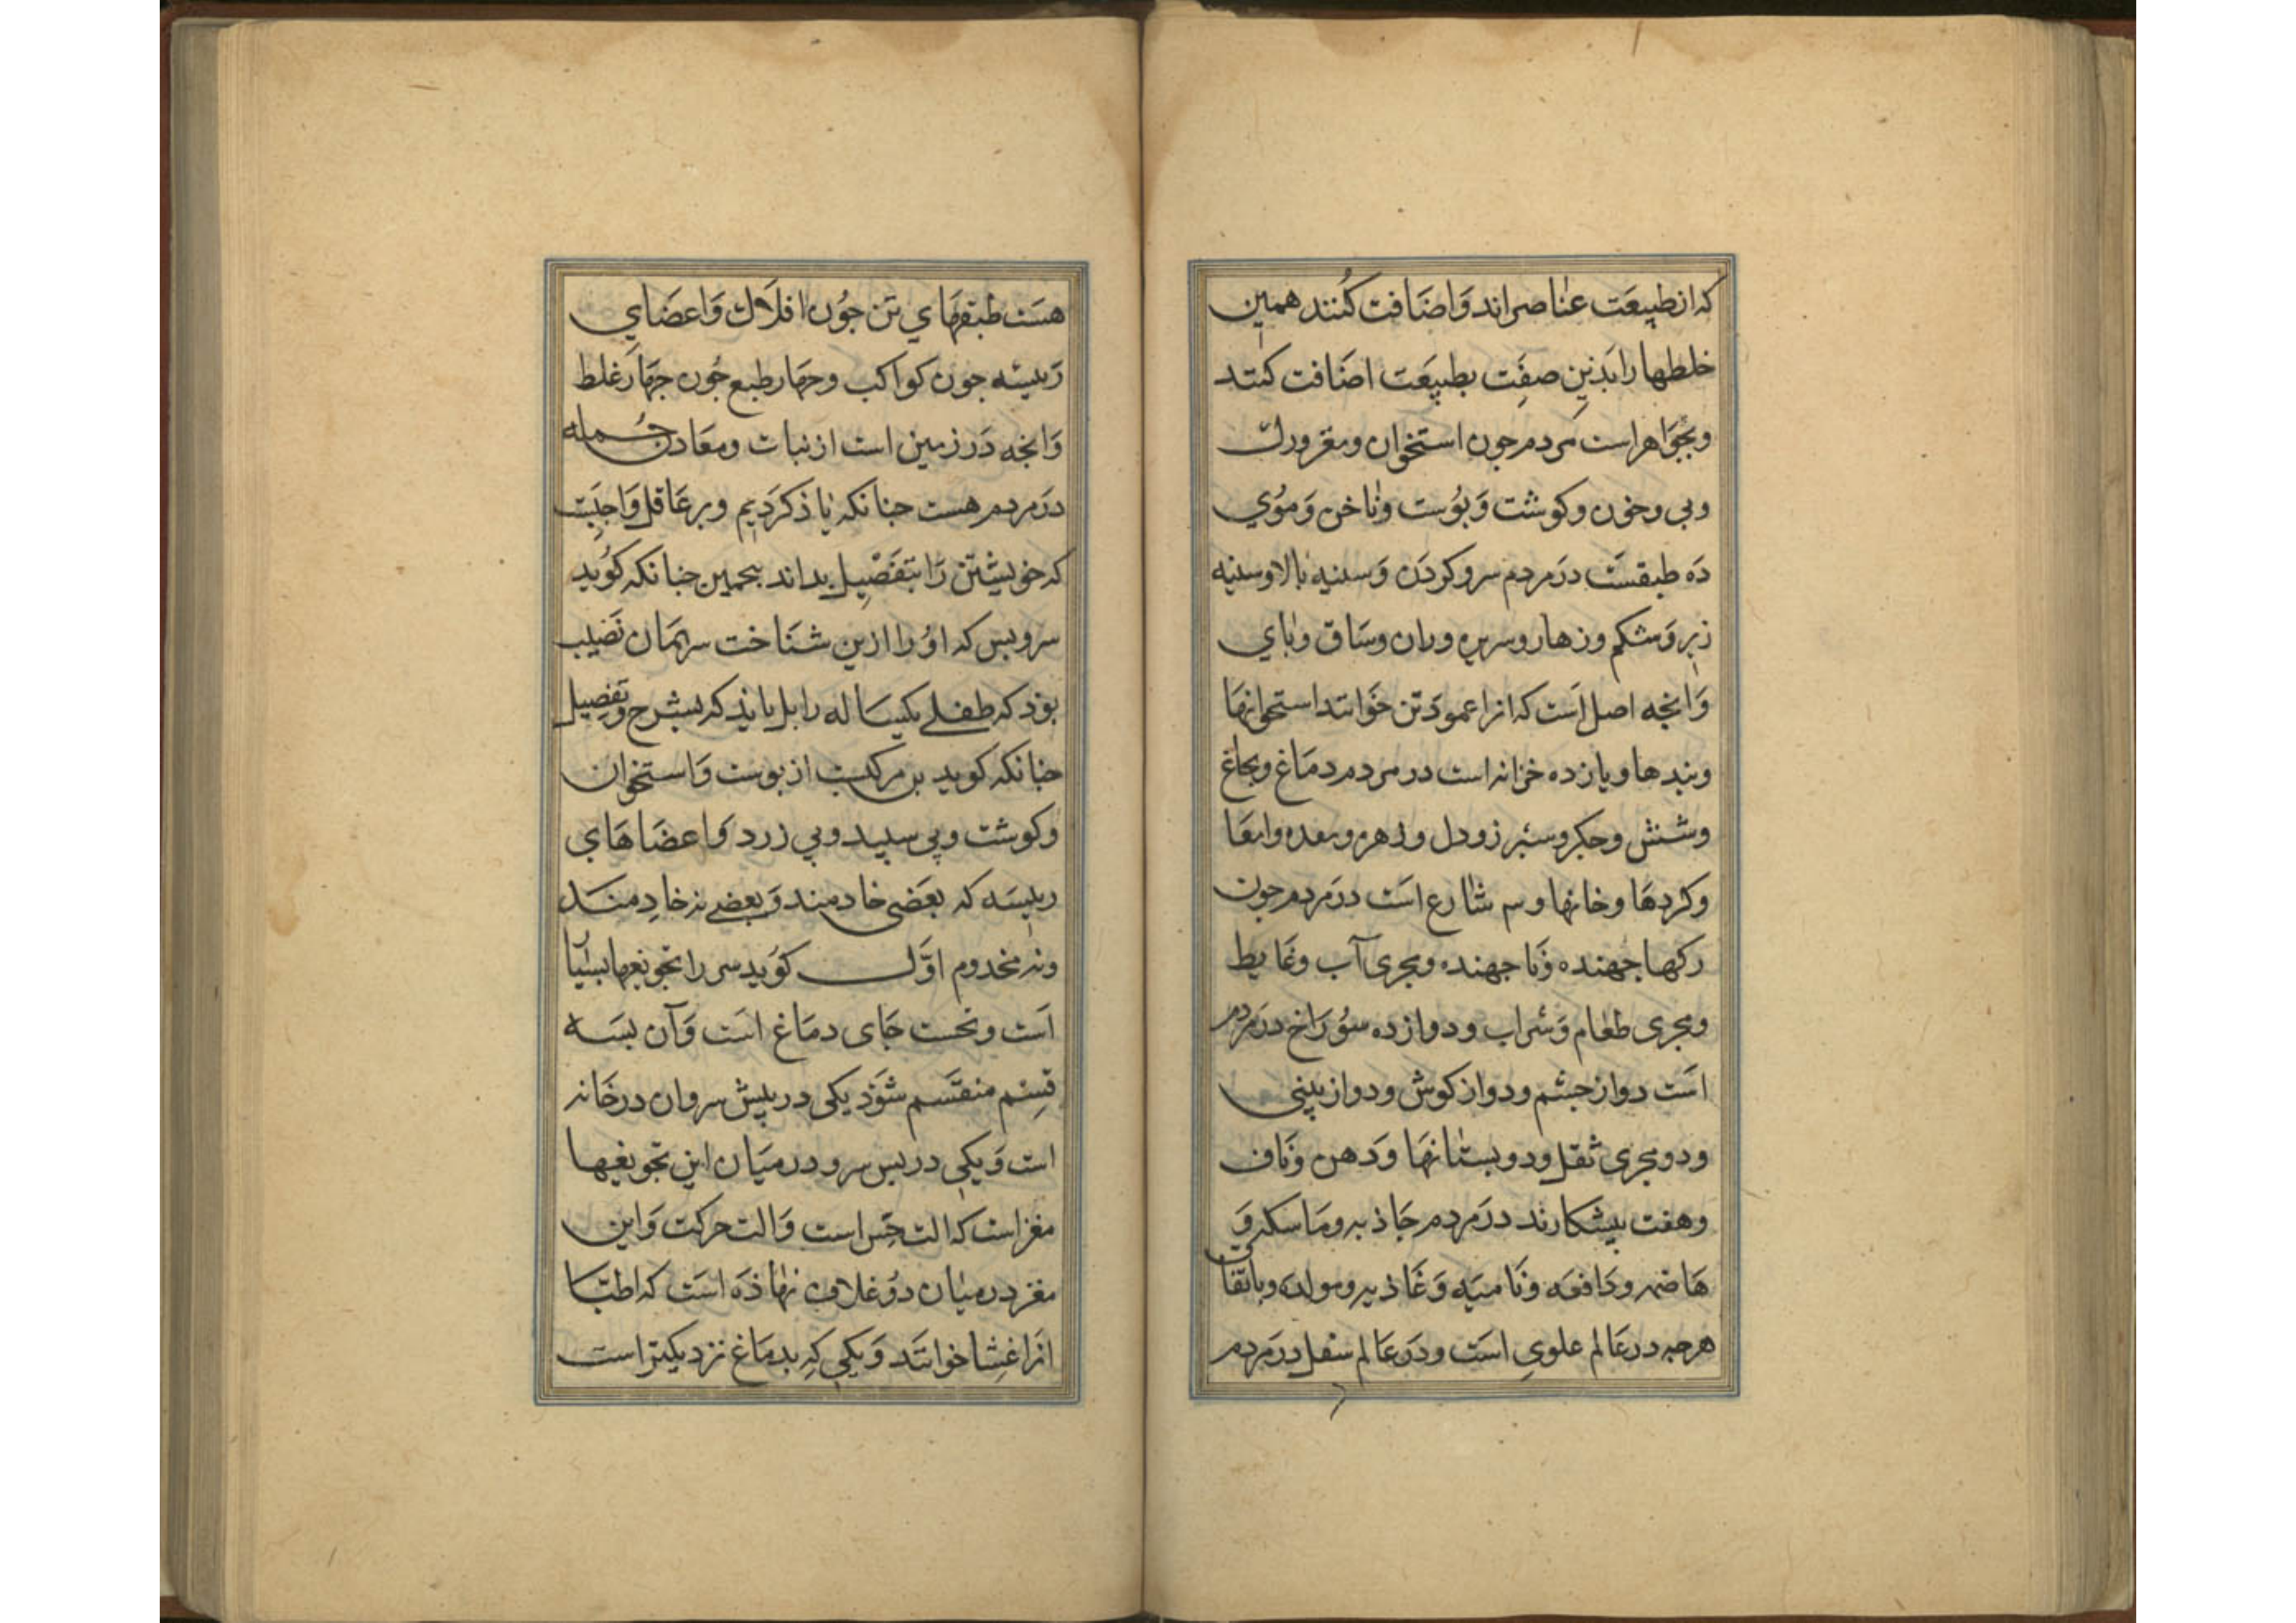 که از طبیعت عناصراند وَاضَافت کُنند همین
خلطها را بَذین صفِت بطبیعَت اضَافت کنند
وبجَواهراست مردم جون استخوان ومغز ورک
وبی وخون وکوشت وَبوُست وناخن وَموُي
دَه طبقسَت دَرمردم سروکردَن وَسینه بالاوسینه
زیر وَشکم وزهاروسرین وران وسَاق وباي
وَانجه اصل است که انرا عمودَ تن خوَانند استخوانها
وبندها ویازده خزانه است درمردم دمَاغ ونخاغ
وشش وجکر وسبُرز ودل وزهره ومعده وامعَا
وکردهَا وخانها وسه شارع است دَرمَردم جون
رکها جهنده وَنا جهنده ومجری آب وغَایط
ومجری طعام وَشراب ودوازده سوُرَاخ درمَردم
است دواز جشم ودواز کوش ودواز بینی
ودومجری ثقل ودوبستانهَا وَدهن وَناف
وهفت بیشکارند درَمردم جَاذبه ومَاسکه وَ
هَاضمه ودَافعه ونَامیَه وَغَاذیه ومولده وباتفاق
هرجه درعَالم علوي است ودَرعَالم سفل درَمردم
هسَت طبقهَاي تَن جوُن افلاک وَاعضَاي
رَییسه جون کواکب وجهار طبع جوُن جهَار غلط
وَانجه دَرزمین است از نبات ومعَادن جُمله
درَمردم هست جنانکه یاذ کردَیم وبرعَاقل وَاجبَت
که خویشتن رَا بتفَصْیِل بداند بجمین جنانکه کوُید
سروبس که اوُرا ازین شنَاخت سرهمَان نَصیب
بوَذ که طفلے یکسَاله رابل بایذ که بشرح وتفصیل
جنانکه کوید بن مرکبست از بوست وَاستخوان
وکوشت وپی سپید وپی زرد وَاعضَاهَاي
رییسَه که بعَضی خادمند وَبعضے نه خادِمنَد
ونه مخدوم اوَّل کوَید سر را تجویفها بسیا
اَست ونخست جَای دمَاغ است وَآن بسَه
قِسم منقسَم شوَذ یکی دربیش سر وان درخَانه
است وَیکی دربس سر ودرمیَان این تجویفها
مغزاست که الت حِس است وَالت حرکت وَاین
مغز درمیان دوُ غلاف نهاذَه است که اطبّا
انَرا غِشا خوانند وَیکي کِه بدمَاغ نزدیکتراست